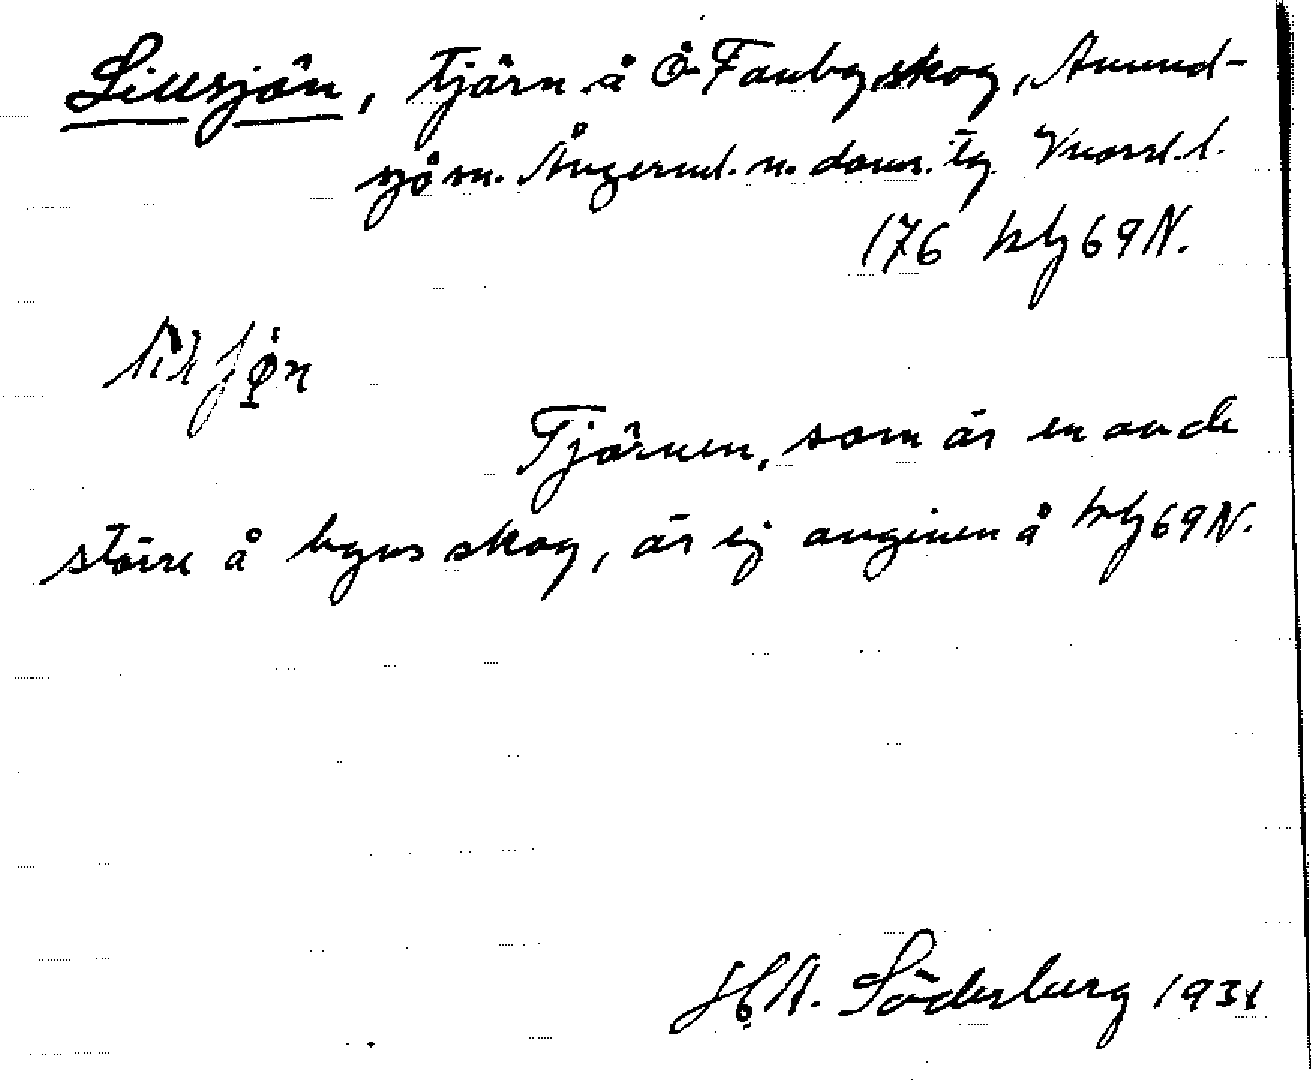 Lillsjön, tjärn å Ö. Fanbyskog, Anund-
sjö sn. Ångerml. n. doms. tg Vnorrl. l.
176 kbl 69 N.
Tjärnen, som är en av de
större å byns skog, är ej angiven å kbl 69 N.
H.A. Söderberg 1931